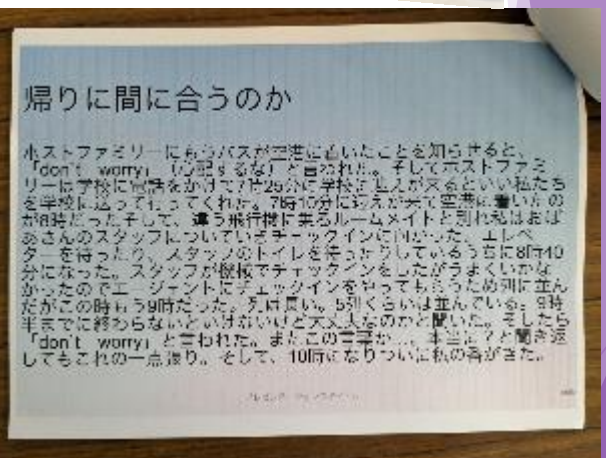 帰りに間に合うのか
ホストファミリーにもうバスが空港に着いたことを知らせると、
「don't worry」（心配するな）と言われた。そしてホストファミ
リーは学校に電話をかけて7時25分に学校に迎えが来るといい私たち
を学校に送って行ってくれた。7時10分に迎えが来て空港に着いたの
が8時だったそして、違う飛行機に乗るルームメイトと別れ私はおば
あさんのスタッフについていきチェックインに向かった。エレベー
ターを待ったり、スタッフのトイレを待ったりしているうちに8時40
分になった。スタッフが機械でチェックインをしたがうまくいかな
かったのでエージェントにチェックインをやってもらうため列に並ん
だがこの時もう9時だった。列は長い。5列くらいは並んでいる。9時
半までに終わらないといけないけど大丈夫なのかと聞いた。そしたら
「don't worry」と言われた。またこの言葉か…、本当に？と聞き返
してもこれの一点張り。そして、10時になりついに私の番がきた。